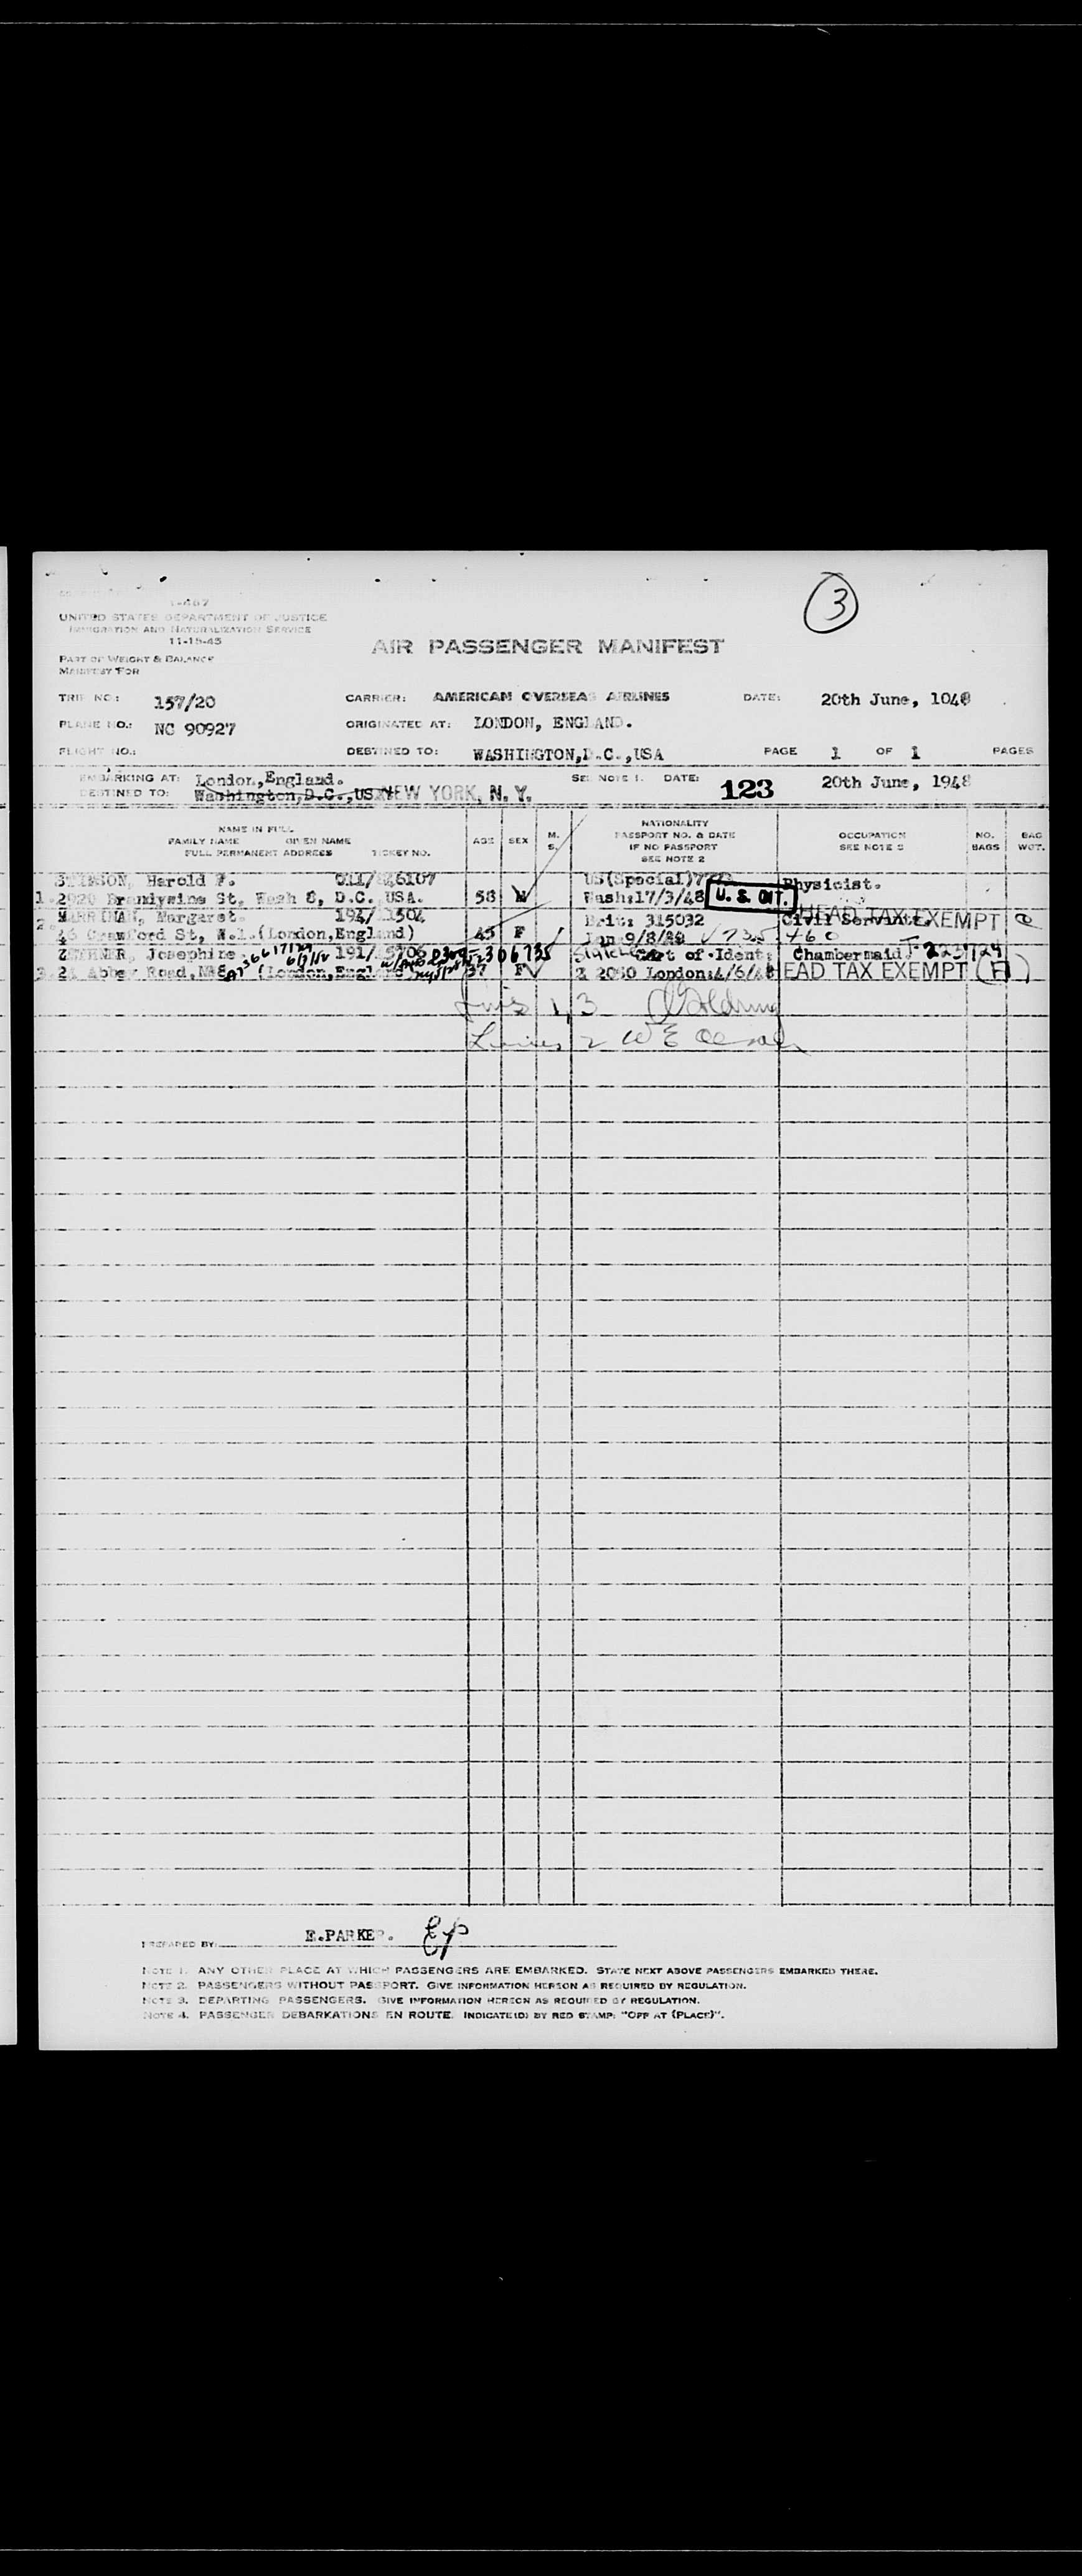 ③
I-467
UNITED STATES DEPARTMENT OF JUSTICE
IMMIGRATION AND NATURALIZATION SERVICE
11-15-45
AIR PASSENGER MANIFEST
PART OF WEIGHT & BALANCE
MANIFEST FOR
TRIP NO.: 157/20 CARRIER: AMERICAN OVERSEAS AIRLINES DATE: 20th June, 1048
PLANE NO.: NC 90927 ORIGINATED AT: LONDON, ENGLAND.
FLIGHT NO.: DESTINED TO: WASHINGTON,D.C.,USA PAGE 1 OF 1 PAGES
EMBARKING AT: London,England. SEE NOTE 1. DATE: 20th June, 1948
DESTINED TO: Washington,D.C.,USA NEW YORK, N. Y. 123
NAME IN FULL
FAMILY NAME GIVEN NAME
FULL PERMANENT ADDRESS TICKET NO.
AGE SEX M. S.
NATIONALITY
PASSPORT NO. & DATE
IF NO PASSPORT
SEE NOTE 2
OCCUPATION
SEE NOTE 3
NO. BAGS
BAG WGT.
Harold F. US(Special) Physicist.
1. 2920 Brandywine St, Wash 8, D.C. USA. 58 M Wash:17/3/48 U. S. CIT.
Margaret. 194/ 1504 Brit: 315032 Civil Servite HEAD TAX EXEMPT
2. 46 Crawford St, W.1.(London,England) 45 F 9/8/
Josephine 191/ 2306735 Cert of Ident: Chambermaid
3. 21 Abbey Road, (London,England) 37 F London:4/6/48 HEAD TAX EXEMPT
Lines 1,3
Lines 2 W E
PREPARED BY: E.PARKER. EP
NOTE 1. ANY OTHER PLACE AT WHICH PASSENGERS ARE EMBARKED. STATE NEXT ABOVE PASSENGERS EMBARKED THERE.
NOTE 2. PASSENGERS WITHOUT PASSPORT. GIVE INFORMATION HEREON AS REQUIRED BY REGULATION.
NOTE 3. DEPARTING PASSENGERS. GIVE INFORMATION HEREON AS REQUIRED BY REGULATION.
NOTE 4. PASSENGER DEBARKATIONS EN ROUTE. INDICATE(D) BY RED STAMP: "OFF AT (PLACE)".